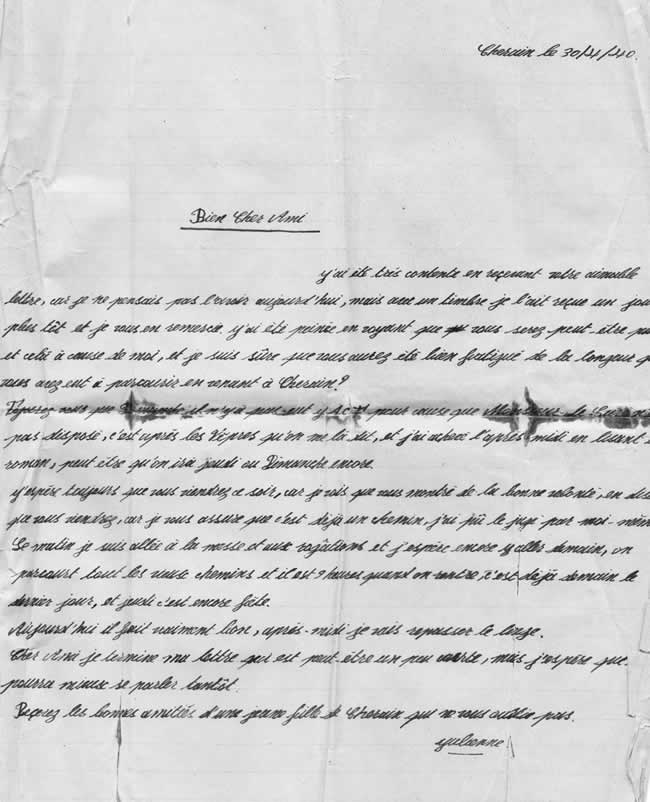 Cherain le 30/4/40.
Bien Cher Ami
j'ai été très contente en reçevant votre aimable
lettre, car je ne pensais pas l'avoir aujourd'hui, mais avec un timbre je l'ait reçue un jour
plus tôt et je vous en remercie, j'ai été peinée en voyant que vous serez peut-être
et cela à cause de moi, et je suis sûre que vous aurez été bien fatigué de la longue
vous avez eut à parcourir en venant à Cherain?
vous que Dimanche il n'y a pas eut pour cause que Monsieur le
pas disposé, c'est après les Vêpres qu'on me là dit, et j'ai achevé l'après midi en lisant
roman, peut être qu'on ira jeudi ou Dimanche encore.
j'espère toujours que vous viendrez ce soir, car je vois que vous montré de la bonne volonté, en
vous viendrez, car je vous assure que c'est déjà un chemin, j'ai pû le par moi-même
Le matin je suis allée à la messe et aux rogations et j'espère encore y aller demain, on
parcourt tout les vieux chemins et il est 9 heures quand on rentre, c'est déjà demain le
dernier jour, et jeudi c'est encore fête.
Aujourd'hui il fait vraiment bon, après-midi je vais repasser le linge.
Cher Ami je termine ma lettre qui est peut-être un peu courte, mais j'espère que
pourra mieux se parler tantôt.
Reçevez les bonnes amitiés d'une jeune fille de Cherain qui ne vous oublie pas.
Julienne